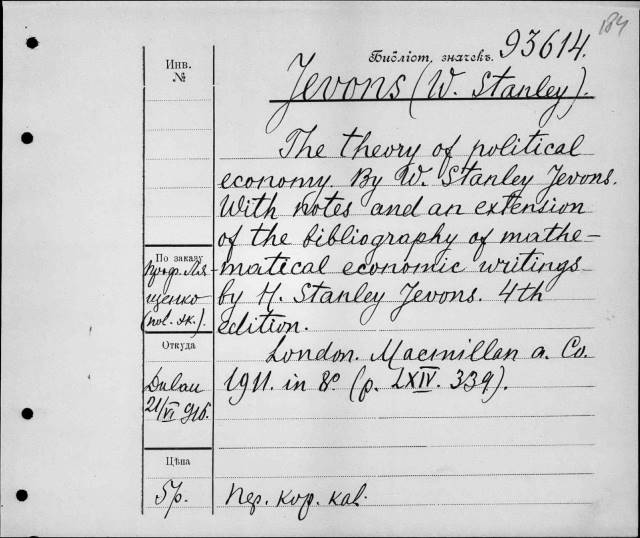 184
Библіот. значекъ 93614.
Инв.
№
Jevons (W. Stanley).
The theory of political
economy. By W. Stanley Jevons.
With notes and an extension
of the bibliography of mathe-
matical economic writings
by H. Stanley Jevons. 4th
edition.
London. Macmillan a. Co.
1911. in 8º (p. LXIV. 339).
По заказу
проф. Ля-
щенко
(pol. эк.).
Откуда
Dulau
21/VI 916.
Цѣна
5р.
пер. кор. kal.